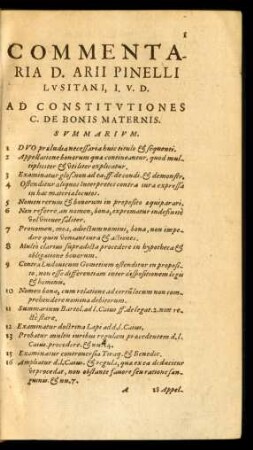 1
COMMENTA-
RIA D. ARII PINELLI
LVSITANI, I. V. D.
AD CONSTITVTIONES
C. DE BONIS MATERNIS.
SVMMARIVM.
1 DVO præludia necessaria huic titulo & sequenti.
2 Appellatione bonorum qua contineantur, quod mul-
tipliciter & vtiliter explicatur.
3 Examinatur gloss. non ad ea, ff. de condi. & demonstr.
4 Ostenditur aliquos interpretes contra iura expressa
in hac materia locutos.
5 Nomen rerum & bonorum in proposito æquiparari.
6 Non referre, an nomen, bona, expromatur indefinitè
vel vniuersaliter.
7 Pronomen, mea, adiectum nomini, bona, non impe-
dire quin veniant iura & actiones.
8 Multo clarius supradicta procedere in hypotheca &
obligatione bonorum.
9 Contra Ludouicum Gometium ostenditur in proposi-
to, non esse differentiam inter dispositionem legis
& hominis.
10 Nomen bona, cum relatione ad certũ locum non com-
prehendere nomina debitorum.
11 Summarium Bartol. ad l. Caius ff. de legat. 2. non re-
ctè stare.
12 Examinatur doctrina Lapi ad d. l. Caius.
13 Probatur multis iuribus regulam præcedentem d. l.
Caius, procedere. & nu. 14.
15 Examinatur controuersia Tiraq. & Benedic.
16 Ampliatur d. l. Caius & regula, qua ex ea deducitur
vt procedat, non obstante fauore seu ratione san-
guinis. & nu. 7.
A 18 Appel.